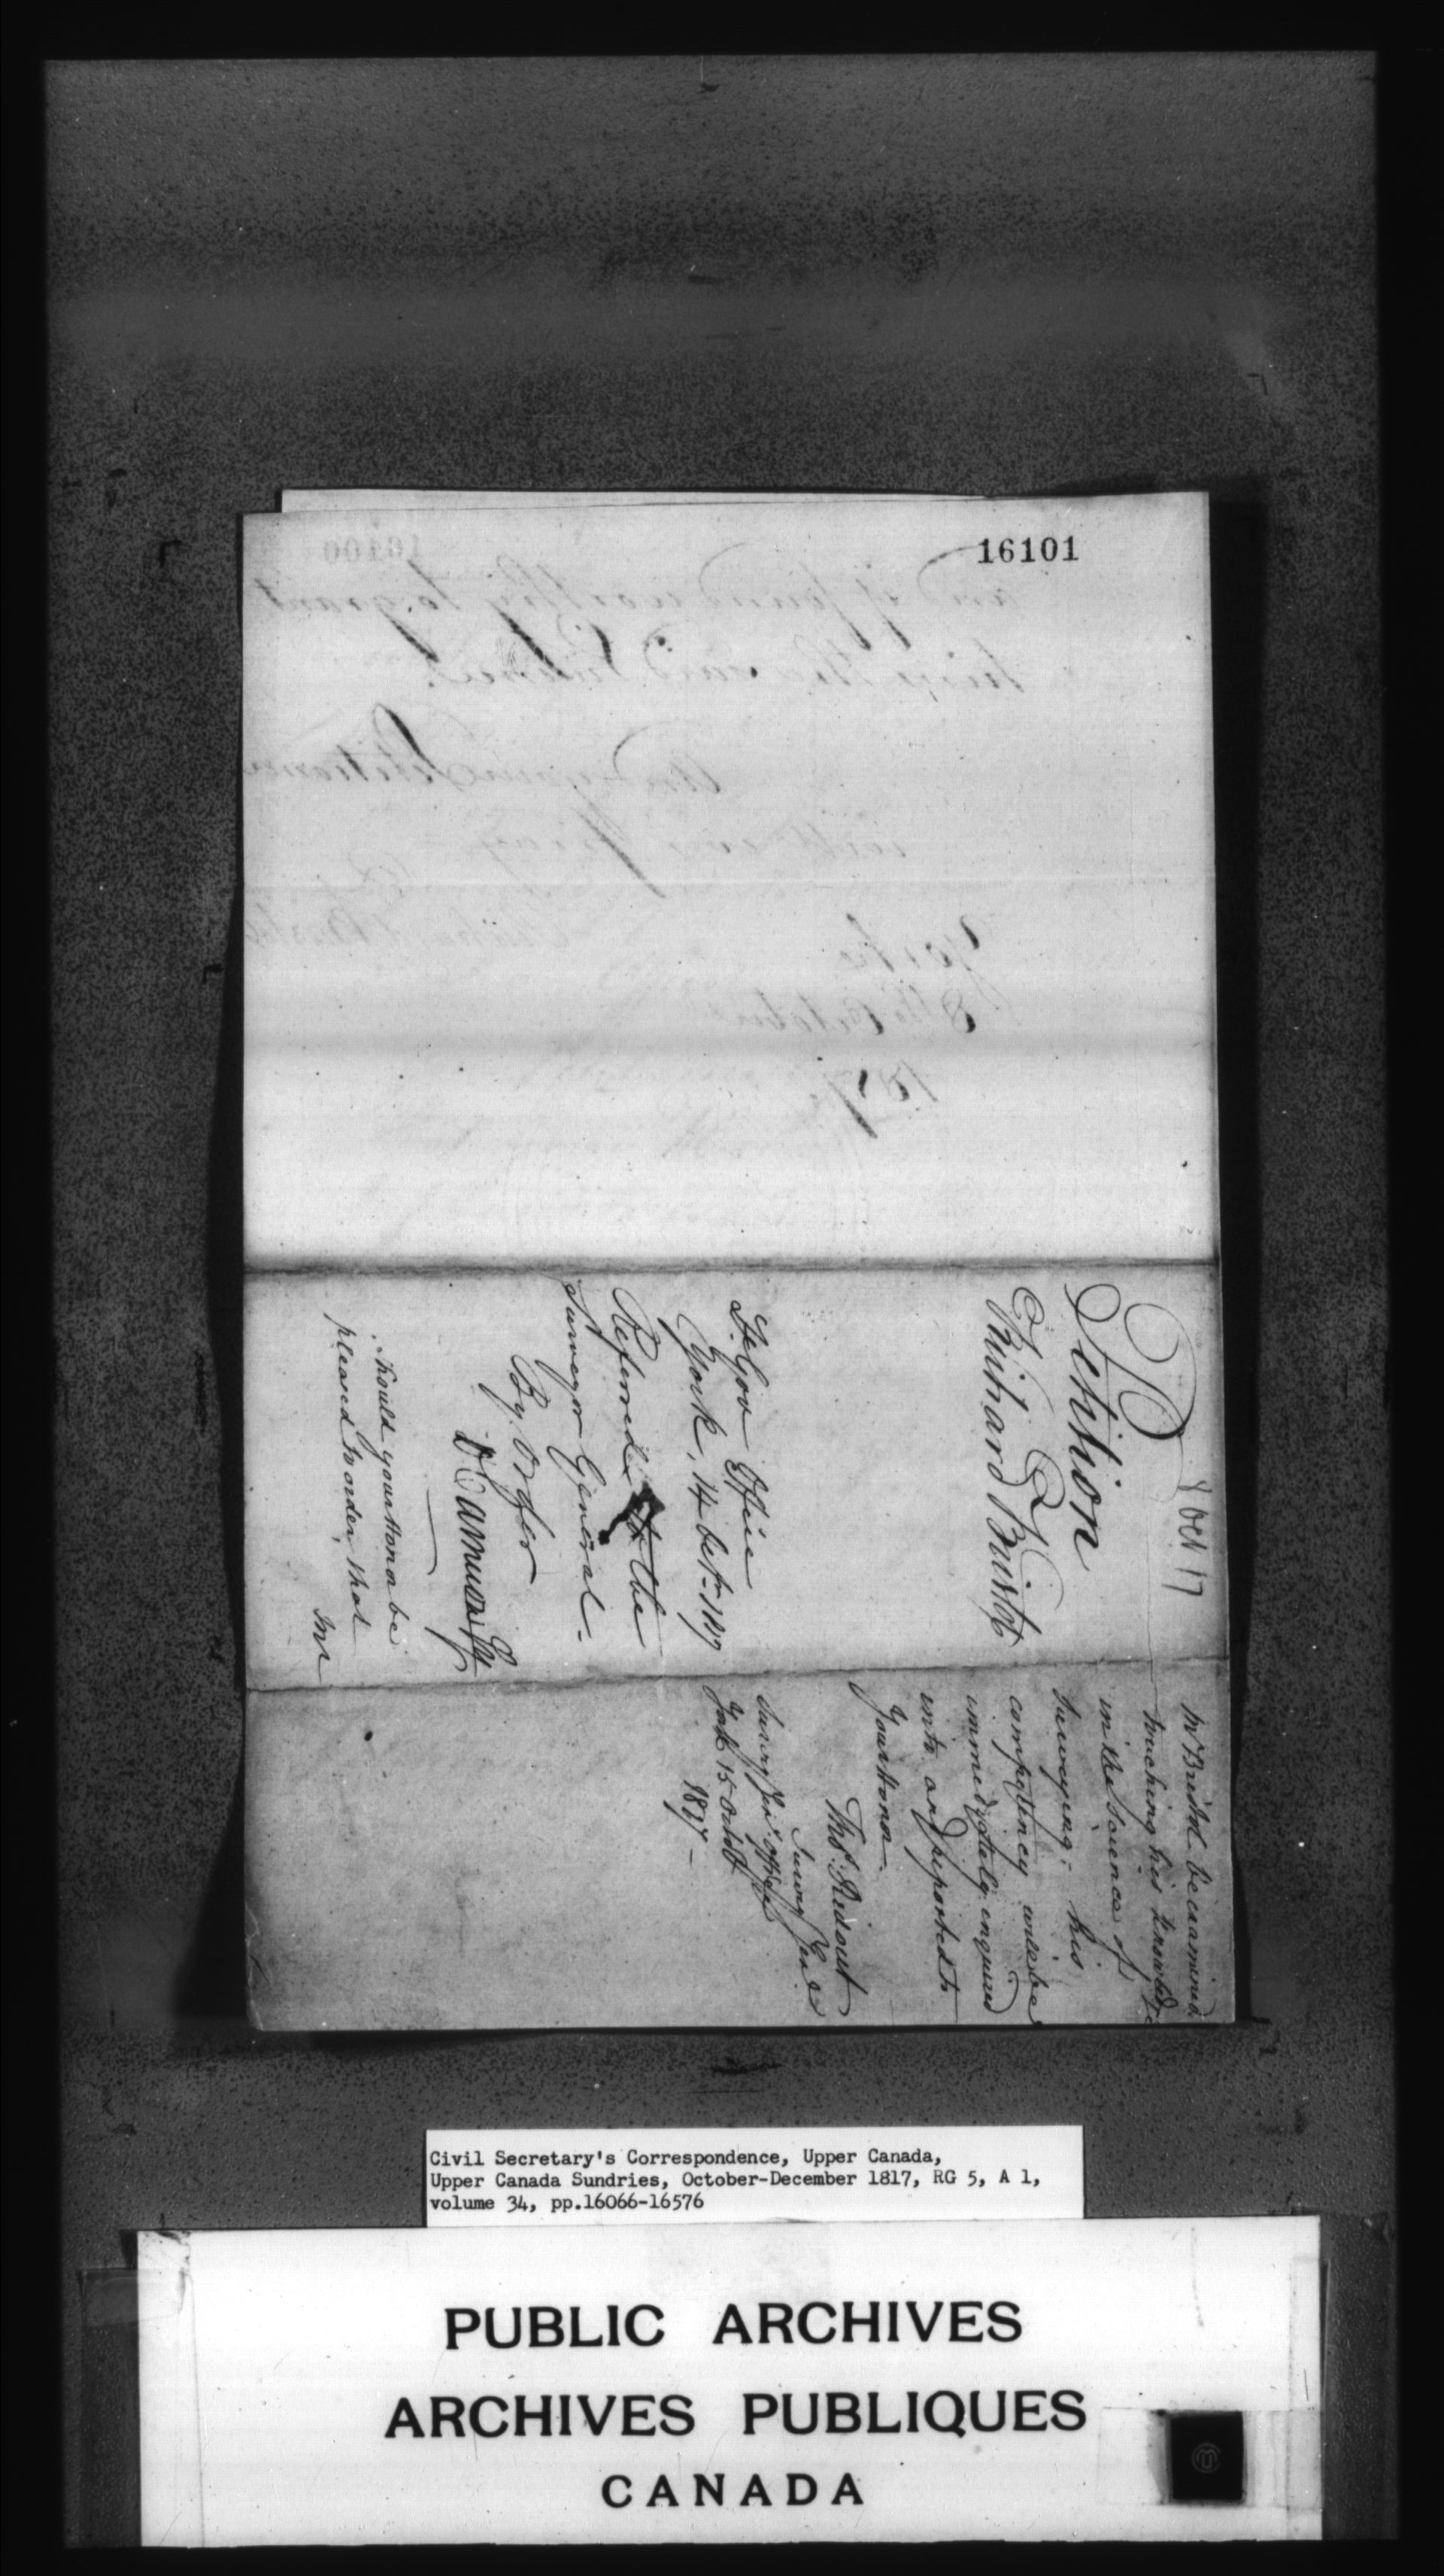 16101
8 Oct 17
Petition
Of
Richard Bristol
Lt Gov Office
York, 14 Oct. 1817
Referred to the
Surveyor General.
By Order
D Cameron
Should your Honor be
pleased to order, that
Mr
Mr Bristol be examined
touching his knowledge
in the Science of
Surveying; his
competency will be
immediately enquired
into and reported to
Your Honor.
Thos. Ridout
Survey Genl
Survey Genl Office
York 15 Octob
1817
Civil Secretary's Correspondence, Upper Canada,
Upper Canada Sundries, October-December 1817, RG 5, A 1,
volume 34, pp.16066-16576
PUBLIC ARCHIVES
ARCHIVES PUBLIQUES
CANADA